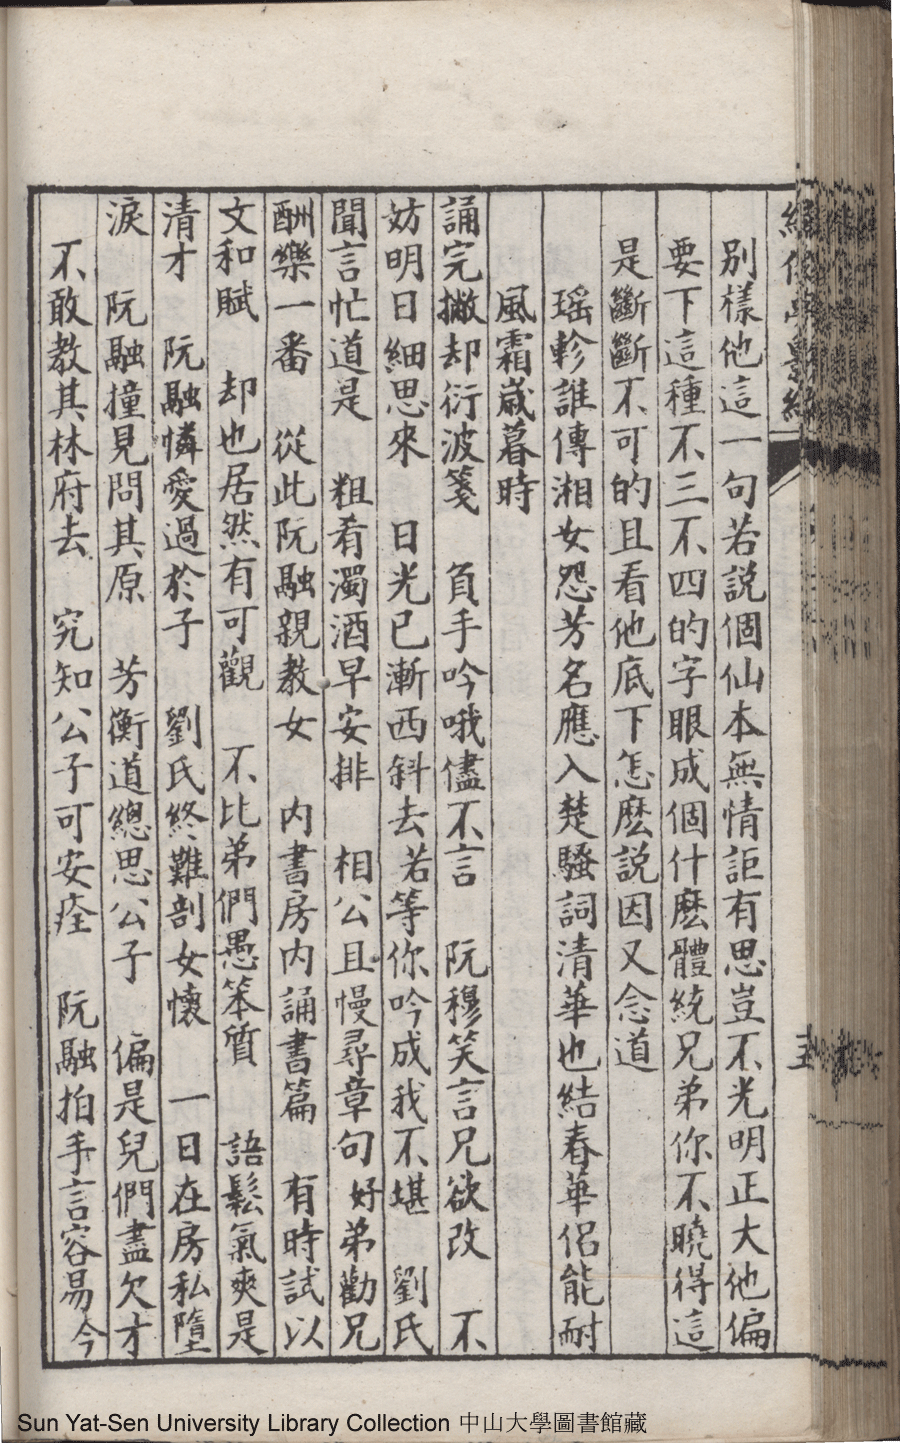 別樣他這一句若說個仙本無情詎有思豈不光明正大他偏
要下這種不三不四的字眼成個什麽體統兄弟你不曉得這
是斷斷不可的且看他底下怎麽說因又念道
瑶軫誰傳湘女怨芳名應入楚騷詞清華也結春華侣能耐
風霜歲暮時
誦完撇却衍波箋 負手吟哦儘不言 阮穆笑言兄欲改 不
妨明日細思來 日光已漸西斜去 若等你吟成我不堪 劉氏
聞言忙道是 粗看濁酒早安排 相公且慢尋章句 好弟勸兄
酬樂一番 從此阮融親教女 内書房内誦書篇 有時試以
文和賦 却也居然有可觀 不比弟們愚笨質 語鬆氣爽是
清才 阮融憐愛過於子 劉氏終難剖女懷 一日在房私墮
淚 阮融撞見問其原 芳衡道總思公子 偏是兒們盡欠才
不敢教其林府去 究知公子可安痊 阮融拍手言容易 今
Sun Yat-Sen University Library Collection 中山大學圖書館藏